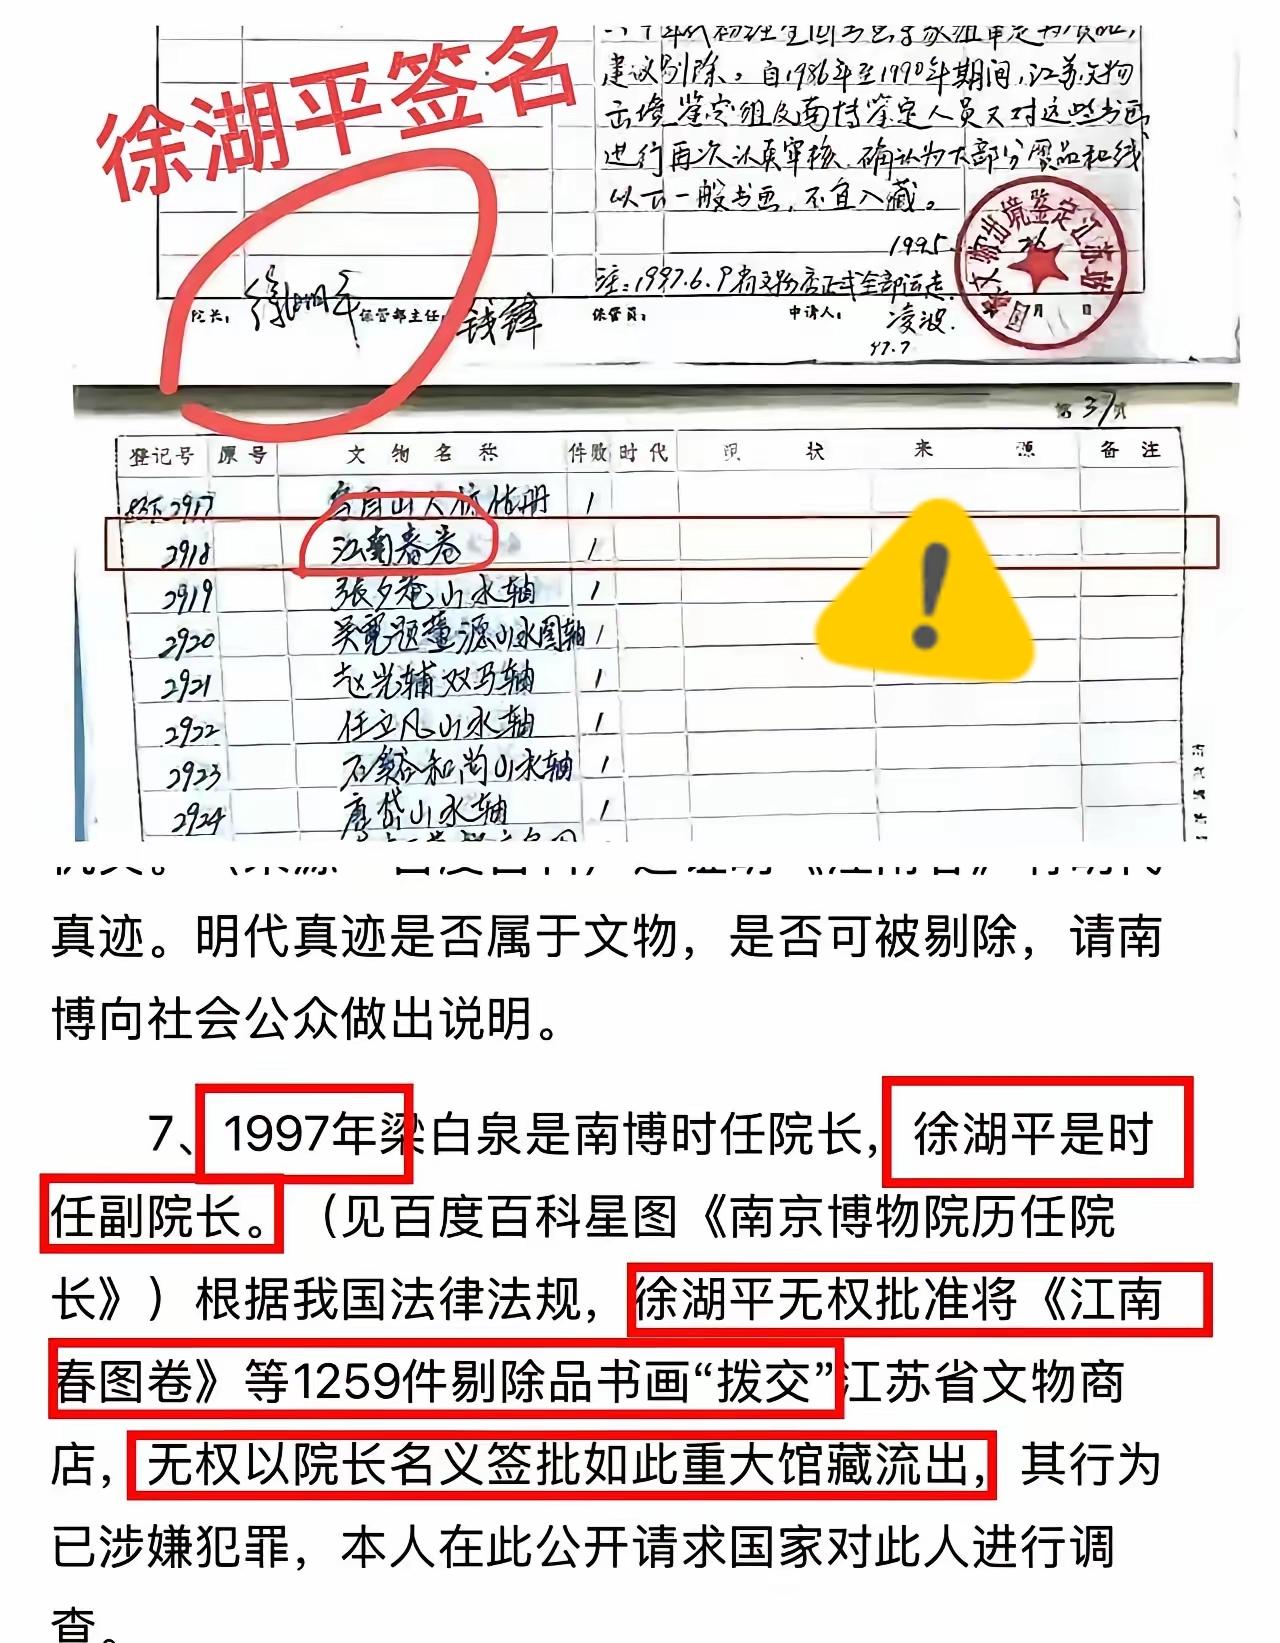 徐湖平签名
建议剔除。自1986年至1990年期间，江苏文物
出境鉴定组及南博鉴定人员又对这些书画
进行再次认真审核，确认为大部分赝品和线
以下一般书画，不宜入藏。
1995.
注：1997.6.9 正式全部运走.
院长：徐湖平 保管部主任：钱锋 保管员： 申请人：凌波.
97.7
月 日
文物出境鉴定江苏站
第37页
登记号 原号 文物名称 件数 时代 现状 来源 备注
2917 1
2918 江南春卷 1
2919 张夕庵山水轴 1
2920 吴宽题董源山水图轴 1
2921 赵光辅双马轴 1
2922 任立凡山水轴 1
2923 石溪和尚山水轴 1
2924 唐岱山水轴 1
真迹。明代真迹是否属于文物，是否可被剔除，请南
博向社会公众做出说明。
7、1997年梁白泉是南博时任院长，徐湖平是时
任副院长。（见百度百科星图《南京博物院历任院
长》）根据我国法律法规，徐湖平无权批准将《江南
春图卷》等1259件剔除品书画“拨交”江苏省文物商
店，无权以院长名义签批如此重大馆藏流出，其行为
已涉嫌犯罪，本人在此公开请求国家对此人进行调
查。